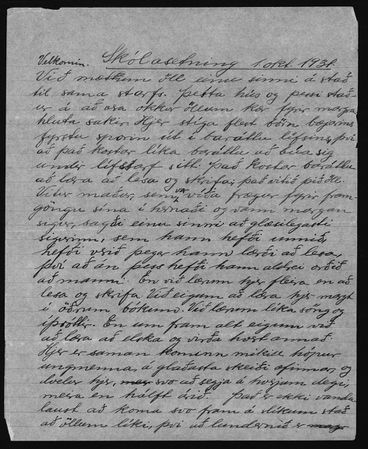 Velkomin. Skólasetning 1 okt. 1931.
Við mætumst öll einu sinni á stað
til sama starfs. Þetta hús og þessi stað-
ur á að vera okkur öllum kær fyrir margra
hluta sakir. Hjer stíga flest börn bæjarins
fyrstu sporin út í baráttu lífsins, því
að það kostar líka baráttu að búa sig
undir lífsstarf sitt. Það kostar baráttu
að læra að lesa og skrifa, það vitið þið öll.
Vitur maður, sem var víða frægur fyrir fram-
göngu sína í hernaði og vann margan
sigur, sagði einu sinni að glæsilegasti
sigurinn, sem hann hefði unnið,
hefði verið þegar hann lærði að lesa
því að án þess hefði hann aldrei orðið
að manni. En við lærum hjer fleira en að
lesa og skrifa. Við eigum að læra hjer margt
í öðrum bókum. Við lærum líka söng og
íþróttir. En um fram alt eigum við
að læra að elska og virða hvort annað.
Hjer er saman kominn mikill hópur
ungmenna, á glaðasta skeiði æfinnar, og
dvelur hjer, svo að segja á hverjum degi,
meira en hálft árið. Það er ekki vanda-
laust að koma svo fram á slíkum stað
að öllum líki, því að lundernið er